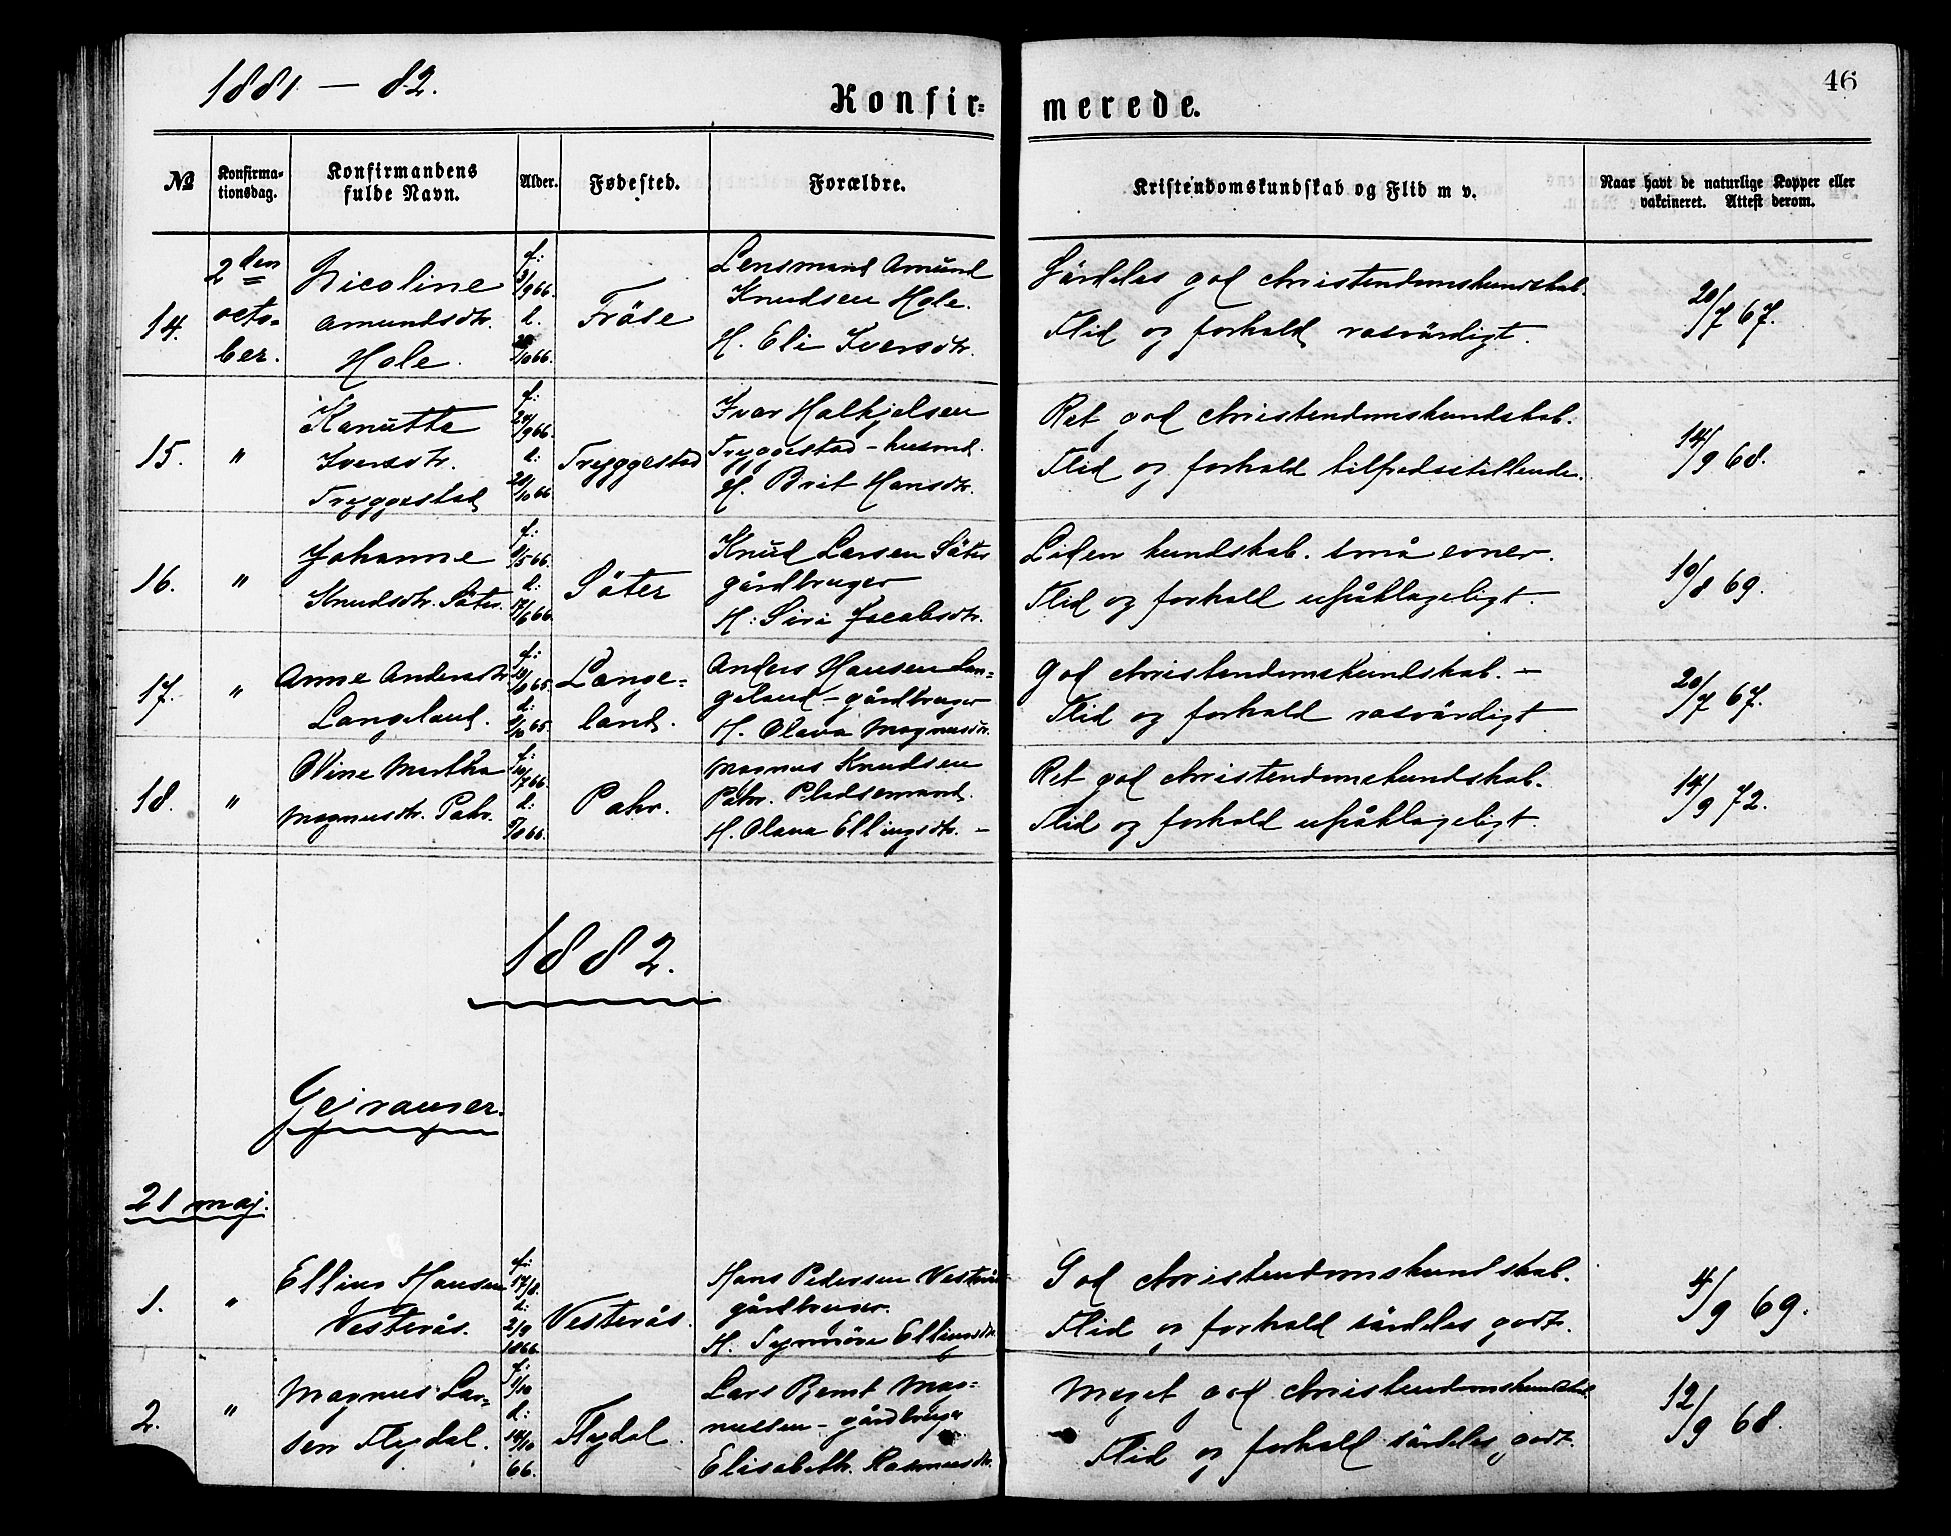 1881 — 82.
46
Konfir-
merede.
No
Konfirma-
tionsdag.
Konfirmandens
fulde Navn.
Alder.
Fødested.
Forældre.
Kristendomskundskab og Flid m v.
Naar havt de naturlige Kopper eller
vakcineret. Attest derom.
14.
2den
octo-
ber.
Nicoline
Amundsdtr.
Hole.
f:
3/9 66.
d.
/10 66.
Fröse
Lensmand Amund
Knudsen Hole.
H. Eli Iversdtr.
Särdeles god christendomskundskab.
Flid og forhold rosvärdigt.
20/7 67.
15.
"
Kanutte
Iversdtr.
Tryggestad
f:
24/9 66.
d:
28/10 66
Tryggestad
Ivar Halkjelsen
Tryggestad - husmd.
H. Brit Hansdtr.
Ret god christendomskundskab.
Flid og forhold tilfredsstillende.
14/9 68.
16.
"
Johanne
Knudsdtr. Säter.
f:
/5 66.
d:
17/6 66.
Säter
Knud Larsen Säter
gårdbruger
H: Siri Jacobsdtr.
Liden kundskab. små evner.
Flid og forhold upåklageligt.
10/8 69.
17.
"
Anne Andersdtr
Langeland.
f:
d:
/10 65.
Lange-
land.
Anders Hansen Lan-
geland - gårdbruger
H. Olava Magnusdtr.
God christendomskundskab. —
Flid og forhold rosvärdigt
20/7 67.
18.
"
Oline Martha
Magnusdtr. Pahr.
f:
/7 66.
d:
5/8 66.
Pahr.
Magnus Knudsen
Pahr. Pladsemand.
H. Olava Ellingsdtr. —
Ret god christendomskundskab.
Flid og forhold upåklageligt.
14/9 72.
1882.
Geiranger.
21 maj.
1.
"
Elling Hansen
Vesterås.
f:
17/8.
d:
2/9
1866
Vesterås.
Hans Pedersen Vesterås
gårdbruger.
H. Synnöve Ellingsdtr.
God christendomskundskab.
Flid og forhold särdeles godt.
4/9 69.
2.
"
Magnus Lar-
sen Flydal.
f:
/10
d:
/10
66.
Flydal.
Lars Bernt Mag-
nussen - gårdbruger
Elisabeth. Rasmusdtr.
Meget god christendomskundskab
Flid og forhold särdeles godt.
12/9 68.